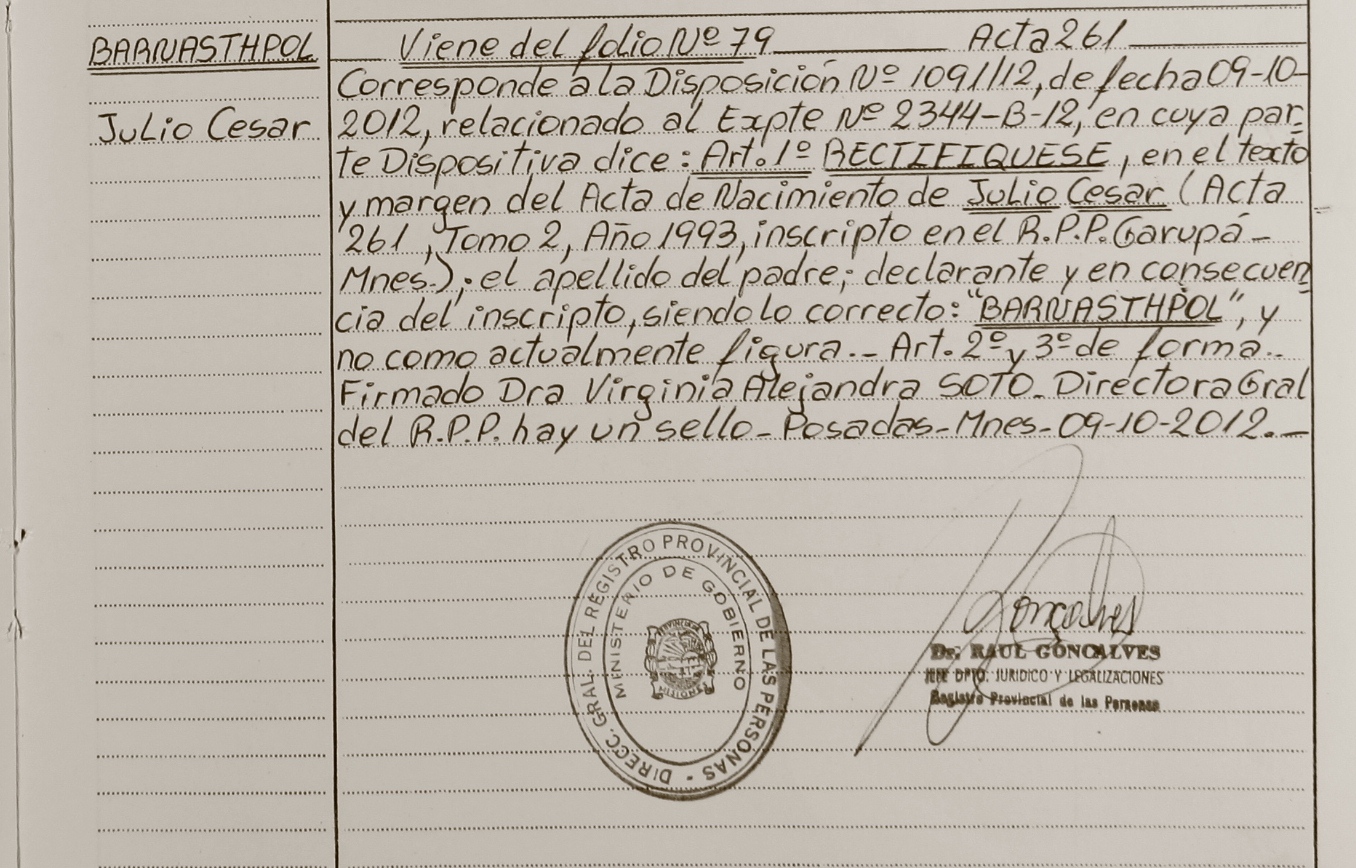 BARNASTHPOL
Julio Cesar
Viene del folio Nº 79 Acta 261
Corresponde a la Disposición Nº 1091/12, de fecha 09-10-
2012, relacionado al Expte Nº 2344-B-12, en cuya par-
te Dispositiva dice: Art. 1º RECTIFIQUESE, en el texto
y margen del Acta de Nacimiento de Julio Cesar (Acta
261, Tomo 2, Año 1993, inscripto en el R.P.P. Garupá-
Mnes.), el apellido del padre; declarante y en consecuen
cia del inscripto, siendo lo correcto: "BARNASTHPOL", y
no como actualmente figura.- Art. 2º y 3º de forma.-
Firmado Dra Virginia Alejandra SOTO- Directora Gral
del R.P.P. hay un sello- Posadas- Mnes- 09-10-2012.-
DIRECC. GRAL. DEL REGISTRO PROVINCIAL DE LAS PERSONAS -
MINISTERIO DE GOBIERNO
PROVINCIA DE
MISIONES
Gonçalves
Dr. RAUL GONCALVES
JEFE DPTO. JURIDICO Y LEGALIZACIONES
Registro Provincial de las Personas